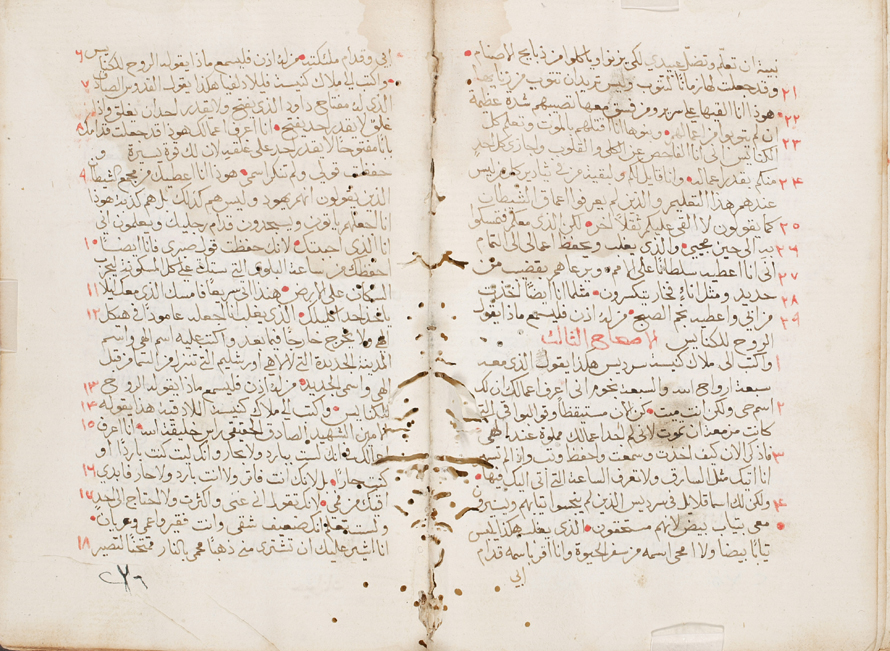 نبية ان تعلّم وتضلّ عبيدي لكي يزنوا وياكلوا من ذبايح الاصنام
٢١ وقد جعلت لها زمانًا لتتوب وليس تريد ان تتوب من زناها
٢٢ هوذا انا القيها على سرير ومن فسق معها لتصيبهم شدة عظيمة
ان لم يتوبوا من اعمالهم وبنوها انا اقتلهم بالموت وتعلم كل
٢٣ الكنايس اني انا الفاحص عن الكلى والقلوب وليجازى كل احد
٢٤ منكم بقدر عماله وانا قايل لكم ولبقية من في ثياديرا كل من ليس
عندهم هذا التعليم والذين لم يعرفوا اعماق الشيطان
٢٥ كما يقولون لا القي عليكم ثقلاً اخر لكن الذي معكم فتمسكوا
٢٦ به الى حين مجيي والذي يغلب ويحفظ اعمالي الى التمام
٢٧ اني انا اعطيه سلطانًا على الامم ويرعاهم بقضيب من
٢٨ حديد ومثل اناء فخار ينكسرون مثلما انا ايضًا اخذت
٢٩ من ابي واعطيه نجم الصبح من له اذن فليسمع ماذا يقول
الروح للكنايس الاصحاح الثالث
١ واكتب الى ملاك كنيسة سرديس هكذا يقول الذي معه
سبعة ارواح الله والسبعة نجوم اني اعرف اعمالك ان لك
٢ اسم حي ولكن انت ميت كن الان مستيقظًا وقوّ البواقي التي
كانت مزمعة ان تموت لاني لم اجد اعمالك مملوة عند الهي
٣ فاذكر الان كيف اخذت وسمعت واحفظ وتب وان لم تسهر
انا اتيك مثل السارق ولا تعرف الساعة التي اتي اليك فيها
٤ ولكن لك اسما قلايل في سرديس الذين لم ينجسوا ثيابهم ويسيرون
معي بثياب بيض لانهم مستحقون الذي يغلب هكذا يلبس
ثيابًا بيضًا ولا امحي اسمه من سفر الحيوة وانا اقر باسمه قدام
ابي
٦ ابي وقدام ملايكته من له اذن فليسمع ماذا يقول الروح للكنايس
٧ واكتب الى ملاك كنيسة فيلادلفيا هكذا يقول القدوس الصادق
الذي له مفتاح داود الذي يفتح ولا يقدر احد ان يغلق واذا
٨ غلق لا يقدر احد يفتح انا اعرف اعمالك هوذا قد جعلت قدامك
بابًا مفتوحًا لا يقدر احد على غلقه لان لك قوة يسيرة وقد
٩ حفظت قولي ولم تنكر اسمي هوذا انا اعطيك من مجمع الشيطان
الذين يقولون انهم يهود وليس هم كذلك بل هم كذبة هوذا
انا اجعلهم ياتون ويسجدون قدام رجليك ويعلمون اني
١٠ انا الذي احببتك لانك حفظت قول صبري فانا ايضًا
احفظك من ساعة البلوى التي ستاتي على كل المسكونة لتجرب
١١ السكان على الارض هنذا اتي سريعًا فامسك الذي معك ليلا
١٢ ياخذ احد اكليلك الذي يغلب انا اجعله عامودًا في هيكل
الهي ولا يخرج خارجًا فيما بعد واكتب عليه اسم الهي واسم
المدينة الجديدة التي لالهي اورشليم التي تنزل من السما من قبل
١٣ الهي واسمي الجديد من له اذن فليسمع ماذا يقول الروح
١٤ للكنايس واكتب الى ملاك كنيسة اللاذقية هذا يقوله
١٥ الامين الشهيد الصادق الحقيقي راس خليقة الله انا اعرف
اعمالك انك لست ببارد ولا بحار وانك ليت كنت باردًا او
١٦ كنت حارًا بل لانك انت فاتر ولا انت بارد ولا حار فابدي
١٧ اتقياك من فمي لانك تقول اني غني واكثرت ولا احتاج الى احد
ولست تعلم انك ضعيف شقي وانت فقير واعمى وعريان
١٨ انا اشير عليك ان تشتري مني ذهبًا محمي بالنار ممتحنًا لتصير